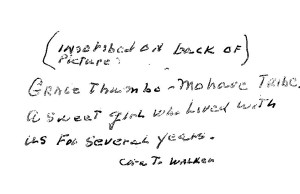 (Inscribed on back of
Picture:)
Grace Thumbo - Mohave Tribe.
A sweet girl who lived with
us for several years.
Cora T. Walker